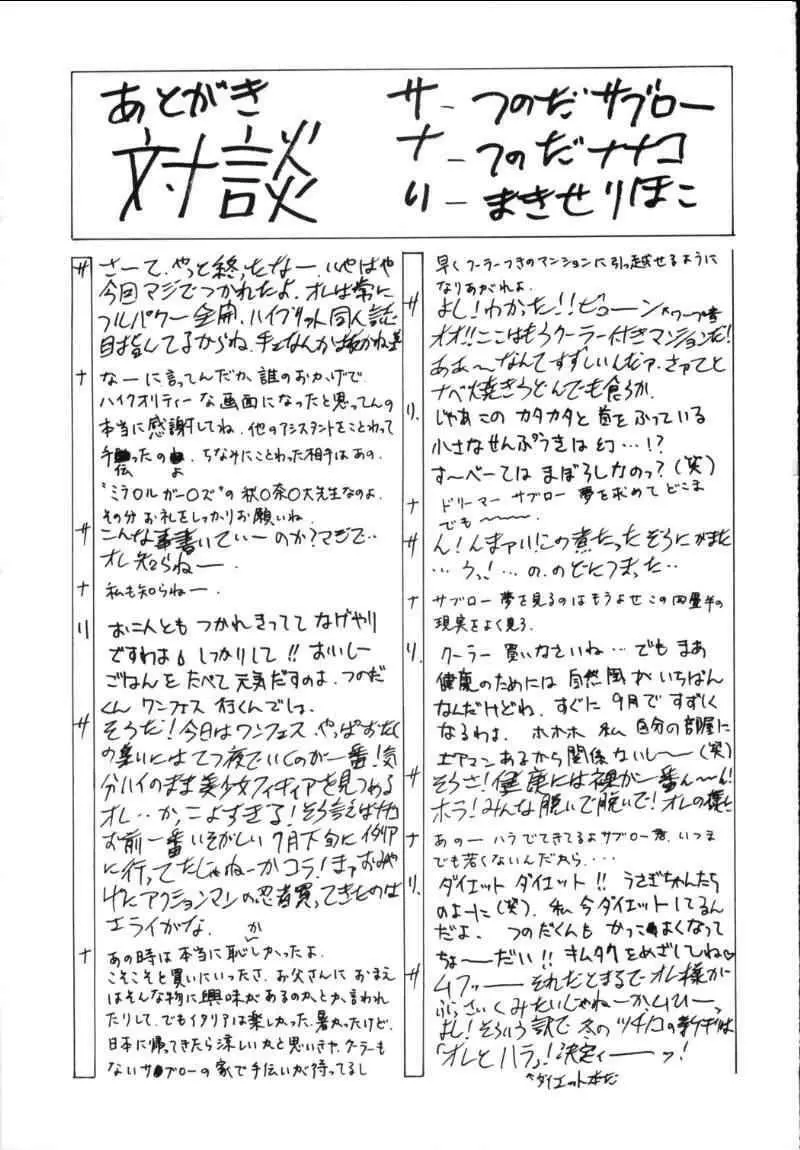 あとがき
対談
サ－つのだサブロー
ナ－つのだナナコ
り－まきせりほこ
サ さーて、やっと終ったなー、いやはや
今回マジでつかれたよ。オレは常に
フルパワー全開、ハイブリット同人誌
目指してるからね。手
ナ なーに言ってんだか、誰のおかげで
ハイクオリティーな画面になったと思ってんの
本当に感謝してね。他のアシスタントをことわって
手伝ったのよ。ちなみにことわった相手はあの、
"ミラ○ルガー○ズ"の秋○奈○大先生なのよ。
その分お礼をしっかりお願いね。
サ こんな事書いていーのか？マジで‥
オレ知らねー。
ナ 私も知らねー。
り お二人とも つかれきってて なげやり
ですわよ。しっかりして!! おいしー
ごはんをたべて元気だすのよ。つのだ
くん ワンフェス 行くんでしょ。
サ そうだ！今日はワンフェス、やっぱおたく
の集いにはてつ夜でいくのが一番！気
分ハイのまま美少女フィギュアを見つめる
オレ‥かっこよすぎる！そう言えばナナコ
お前一番いそがしい7月下旬にイタリア
に行ってたじゃねーかコラ！まァおみや
げにアクションマンの忍者買ってきたのは
エライがな。
ナ あの時は本当に恥かしかったよ。
こそこそと買いにいったさ。お父さんにおまえ
はそんな物に興味があるのかとか言われ
たりして。でもイタリアは楽しかった。暑かったけど。
日本に帰ってきたら涼しいかと思いきや、クーラーも
ないサブローの家で手伝いが待ってるし
早くクーラーつきのマンションに引っ越せるように
なりあがれよ。
サ よし！わかった!!ビューン ←ワープ音
オオ!!ここはもうクーラー付きマンションだ！
ああ～なんてすずしいんだァ。さァてと
ナベ焼きうどんでも食うか。
り。じゃあこの カタカタと首をふっている
小さなせんぷうきは幻…!?
す～べーては まぼろしなのっ？（笑）
ナ ドリーマー サブロー 夢を求めてどこま
でも～～～。
サ ん！んまァい！この煮たったぞうにがまた
…うっ！…の、のどにつまった‥
ナ サブロー 夢を見るのはもうよせ この四畳半の
現実をよく見ろ。
り。クーラー 買いなさいね… でも まあ
健康のためには 自然風がいちばん
なんだけどね。すぐに 9月で すずしく
なるわよ。ホホホ 私 自分の部屋に
エアコンあるから関係ないし～（笑）
サ そうさ！健康には裸が一番ん～ん！
ホラ！みんな脱いで脱いで！オレの様に
ナ あのー ハラでてきてるよサブロー君、いつま
でも若くないんだから‥‥
り。ダイエット ダイエット!! うさぎちゃんたち
のよーに（笑）。私 今ダイエットしてるん
だよ。つのだくんも かっこよくなって
ちょーだい!! キムタクをめざしてね♡
サ ムフッー それだとまるでオレ様が
ぶさいくみたいじゃねーか、ムヒーっ
よし！そういう訳で 冬の ツチノコの新刊は
「オレとハラ」！決定ィーーッ！
↑ダイエット本だ